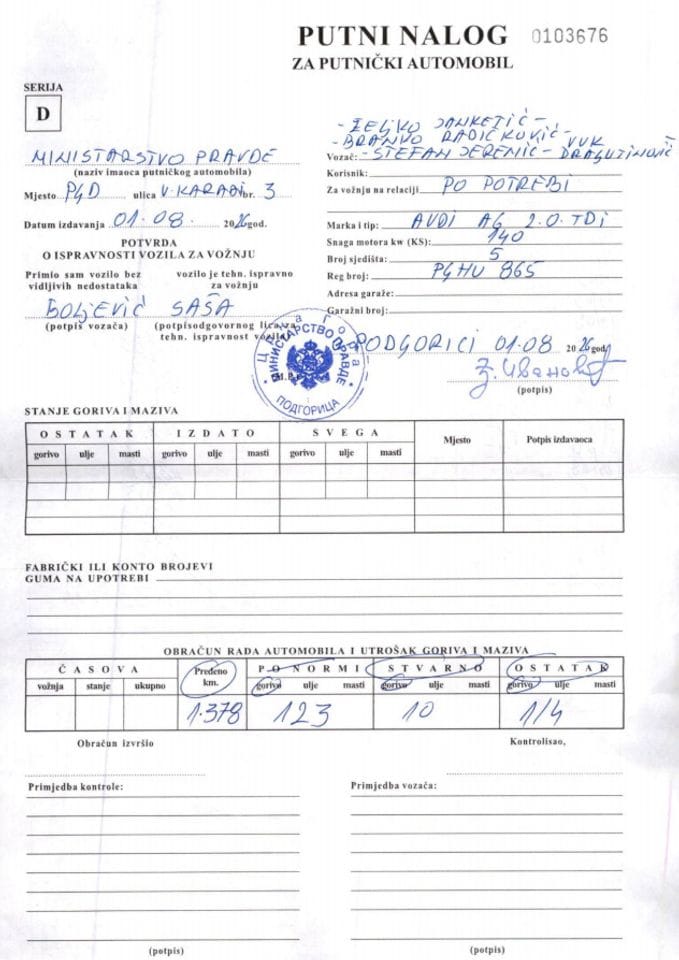 PUTNI NALOG 0103676
ZA PUTNIČKI AUTOMOBIL
SERIJA
D
MINISTARSTVO PRAVDE
(naziv imaoca putničkog automobila)
Mjesto PGD ulica V. KARADŽI br. 3
Datum izdavanja 01.08. 2026 god.
POTVRDA
O ISPRAVNOSTI VOZILA ZA VOŽNJU
Primio sam vozilo bez vidljivih nedostataka
vozilo je tehn. ispravno za vožnju
BOLJEVIĆ SAŠA
(potpis vozača) (potpisodgovornog lica za
tehn. ispravnost vozila)
- ŽELJKO JANKETIĆ -
- BRANKO RADIČKOVIĆ -
Vozač: - STEFAN JEREMIĆ - VUK DRAGUTINOVIĆ
Korisnik:
Za vožnju na relaciji PO POTREBI
Marka i tip: AUDI A6 2.0. TDi
Snaga motora kw (KS): 140
Broj sjedišta: 5
Reg broj: PGHU 865
Adresa garaže:
Garažni broj:
Црна Гора
МИНИСТАРСТВО ПРАВДЕ
ПОДГОРИЦА
PODGORICI 01.08 2026 god.
(potpis)
STANJE GORIVA I MAZIVA
OSTATAK IZDATO SVEGA Mjesto Potpis izdavaoca
gorivo ulje masti gorivo ulje masti gorivo ulje masti
FABRIČKI ILI KONTO BROJEVI
GUMA NA UPOTREBI
OBRAČUN RADA AUTOMOBILA I UTROŠAK GORIVA I MAZIVA
ČASOVA Pređeno km. PO NORMI STVARNO OSTATAK
vožnja stanje ukupno gorivo ulje masti gorivo ulje masti gorivo ulje masti
1.378 123 10 1/4
Obračun izvršio Kontrolisao,
Primjedba kontrole: Primjedba vozača:
(potpis) (potpis)